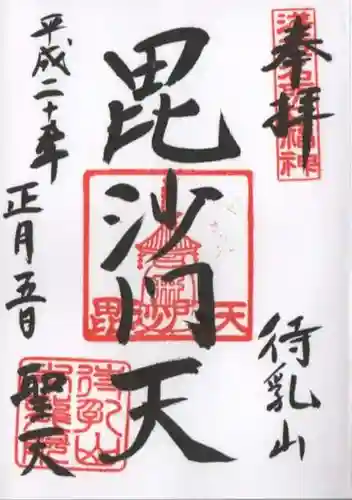 奉拝
待乳山
毘沙門天
平成二十年
正月五日
聖天
毘沙門天